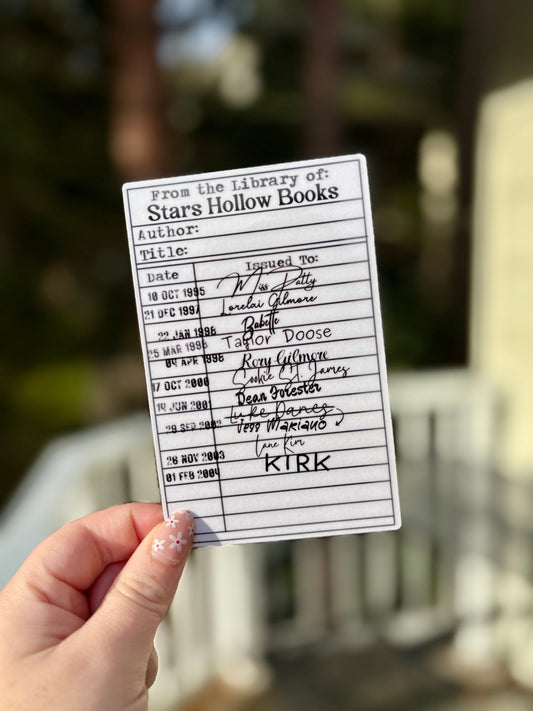 From the Library of:
Stars Hollow Books
Author:
Title:
Date Issued To:
10 OCT 1995 Miss Patty
21 DEC 1997 Lorelai Gilmore
22 JAN 1998 Babette
25 MAR 1998 Taylor Doose
04 APR 1998 Rory Gilmore
17 OCT 2000 Sookie St. James
14 JUN 2001 Dean Forester
Luke Danes
29 SEP 2002 Jess Mariano
Lane Kim
28 NOV 2003 KIRK
01 FEB 2004